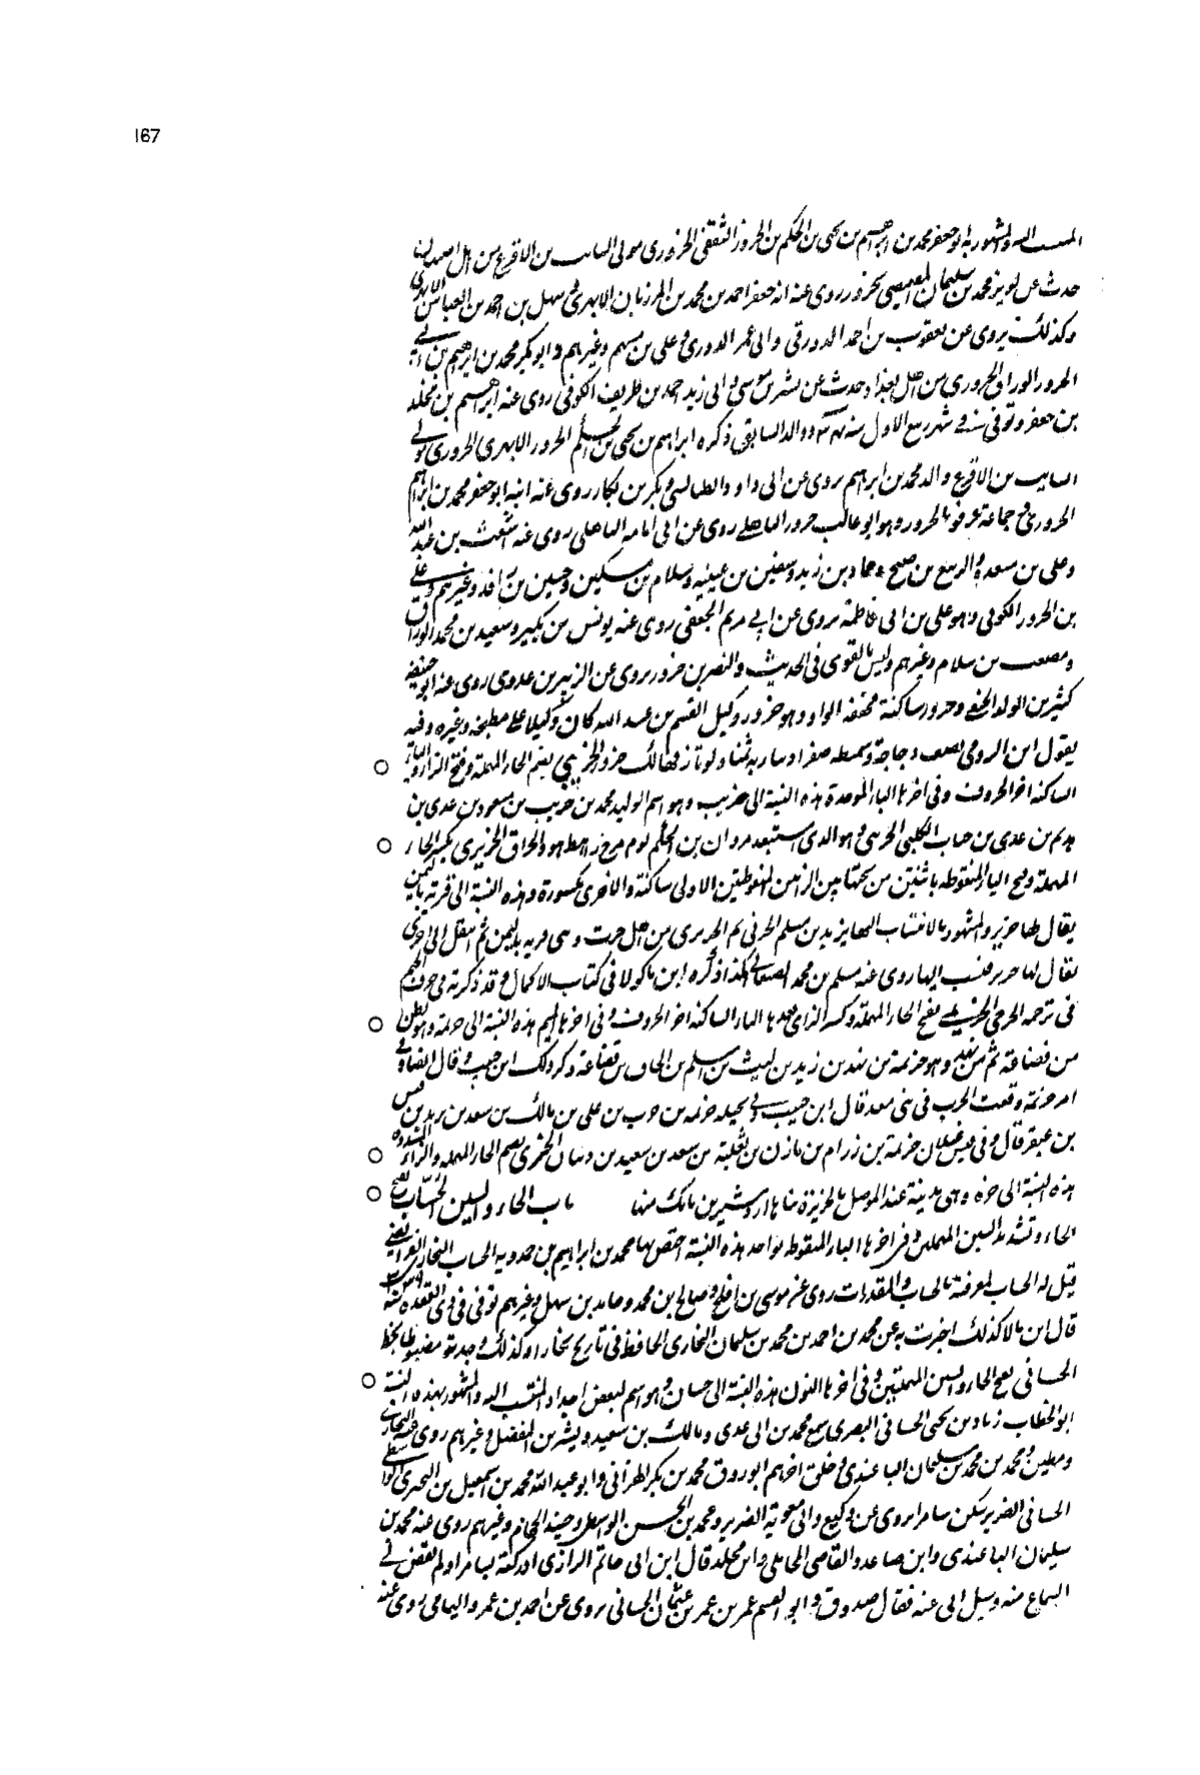 167
المنتسب اليه والمشهور به ابو جعفر محمد بن ابراهيم بن يحيى بن الحكم بن الحزور الثقفى الحزورى مولى السايب بن الاقرع من اهل اصبهان
حدث عن لوين محمد بن سليمان المصيصى بحزور روى عنه ابو جعفر احمد بن محمد بن المرزبان الابهرى وسهل بن احمد بن العباس الابهرى
وكذلك يروى عن يعقوب بن احمد الدورقى وابى عمر الدورى وعلى بن مسلم وغيرهم وابو بكر محمد بن ابرهيم بن ابى
الحزور الوراق الحزورى من اهل بغداد حدث عن بشر بن موسى وابى زيد احمد بن طريف الكوفى روى عنه ابرهيم بن مخلد
بن جعفر وتوفى فى شهر ربيع الاول سنه ووالد السابق ذكره ابراهيم بن يحيى بن الحكم الحزور الابهرى الحزورى مولى
السايب بن الاقرع والد محمد بن ابراهيم يروى عن ابى داود الطيالسى وبكر بن بكار روى عنه ابنه ابو جعفر محمد بن ابراهيم
الحزورى وجماعة عرفوا بالحزور وهو ابو غالب حزور الباهلى روى عن ابى امامه الباهلى روى عنه اشعث بن عبد الله
وعلى بن مسعدة والربيع بن صبيح وحماد بن زيد وسفين بن عيينه وسلام بن مسكين وحسين بن واقد وغيرهم وعلى
بن الحزور الكوفى وهو على بن ابى فاطمة يروى عن ابى مريم الجعفى روى عنه يونس بن بكير وسعيد بن محمد الوراق
ومصعب بن سلام وغيرهم وليس بالقوى فى الحديث والنضر بن حزور يروى عن الزبير بن عدى روى عنه ابو حنيفه
كثير بن الوليد الحنفى وحزور ساكنة مخففه الواو وهو حزور وكيل القسم بن عبيد الله كان وكيلا على مطبخه وغيره وفيه
يقول ابن الرومى يصف دجاجة وسميطه صفرا دينارية ثمنا ولونا زفها لك حزور الحزيبى بضم الحا المهملة وفتح الزاى واليا
الساكنه اخر الحروف وفى اخرها البا الموحدة هذه النسبة الى حزيب وهو اسم الوليد محمد بن حزيب بن مسعود بن عدى بن
هذيم بن عدى بن جناب الكلبى الحزيبى وهو الذى استنقذ مروان بن الحكم يوم مرج راهط هو والحراق الحزيزى بكسر الحاء
المهملة وفتح اليا المنقوطه باثنتين من تحتها بين الزايين المنقوطتين الاولى ساكنة والاخرى مكسورة وهذه النسبة الى قرية باليمن
يقال لها حزيز والمشهور بالانتساب اليها يزيد بن مسلم الجرتى ثم الحزيزى من اهل جرت وهى قرية باليمن ثم انتقل الى اخرى
يقال لها حزيز فنسب اليها روى عنه مسلم بن محمد الصنعانى هكذا ذكره ابن ماكولا فى كتاب الاكمال وقد ذكرته فى حرف الجيم
فى ترجمه الجرتى الحزيمى بفتح الحا المهملة وكسر الزاى وبعدها اليا الساكنه اخر الحروف وفى اخرها الميم هذه النسبة الى حزيمة وهو بطن
من قضاعة ثم من نهد وهو حزيمة بن نهد بن زيد بن ليث بن اسلم بن الحاف بن قضاعة وكذلك ابن حبيب وقال
امر حزيمة وقعت الحرب فى بنى معد قال ابن حبيب وفى بجيله حزيمه بن حرب بن على بن مالك بن سعد بن نذير بن قسر
بن عبقر قال وفى قيس عيلان حزيمة بن رزام بن مازن بن ثعلبة بن سعد بن ذبيان الحزى بضم الحا المهملة والزاى المشددة
هذه النسبة الى حزه وهى مدينة عند الموصل بالجزيرة بناها اردشير بن بابك منها باب الحاء والسين الحسّاب بفتح
الحا وتشديد السين المهملتين وفى اخرها البا المنقوطه بواحدة هذه النسبة اختص بها محمد بن ابراهيم بن حمدويه الحساب البخارى الفرايضى
قيل له الحساب لمعرفته بالحساب والمقدرات روى عن موسى بن افلح وصالح بن محمد وحامد بن سهل وغيرهم توفى فى ذى القعده سنة
قال ابن ماكولا كذلك اخبرت به عن محمد بن احمد بن محمد بن سليمان البخارى الحافظ فى تاريخ بخارا وكذلك وجدته مضبوطا بخط
الحسانى بفتح الحا والسين المهملتين وفى اخرها النون هذه النسبة الى حسان وهو اسم لبعض اجداد المنتسب اليه والمشهور بهذه النسبة
ابو الخطاب زياد بن يحيى الحسانى البصرى سمع محمد بن ابى عدى ومالك بن سعيد وبشر بن المفضل وغيرهم روى عنه البخارى
ومطين ومحمد بن محمد بن سليمان الباغندى وخلق اخرهم ابو روق محمد بن بكر الهزانى وابو عبد الله محمد بن اسمعيل بن البخترى الواسطى
الحسانى الضرير سكن سامرا روى عن وكيع وابى معوية الضرير ومحمد بن الحسن الواسطى وحنيد الحجام وغيرهم روى عنه محمد بن
سليمان الباغندى وابن صاعد والقاضى المحاملى وابن مخلد قال ابن ابى حاتم الرازى ادركته بسامرا ولم يقض لى
السماع منه وسيل ابى عنه فقال صدوق وابو القسم عمر بن عمر بن عثمان الحسانى روى عن احمد بن عمر واليمامى روى عنه